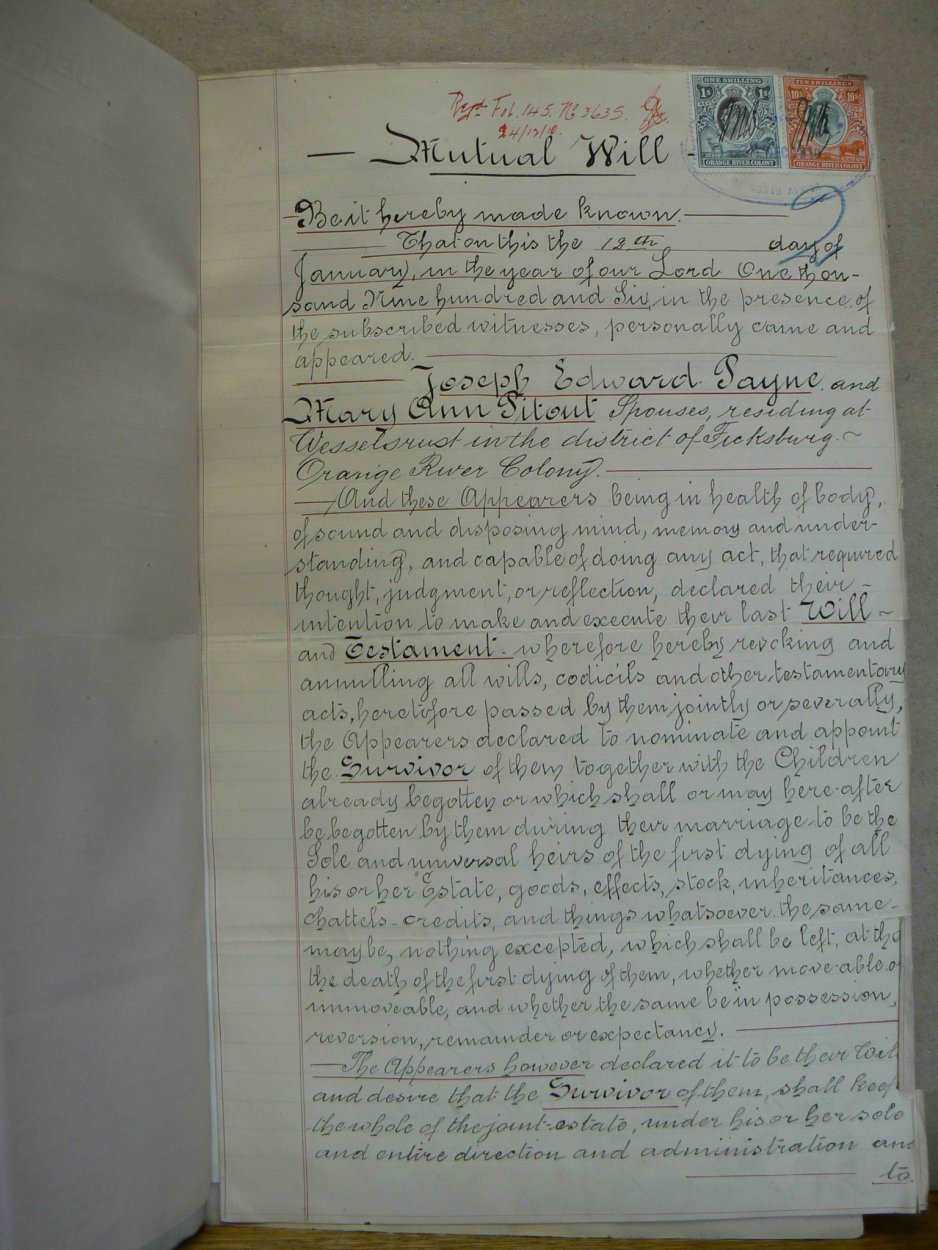 Regd. Fol. 145. No 3635.
24/12/10.
ONE SHILLING
1s 1s
ORANGE RIVER COLONY
TEN SHILLINGS
10s 10s
ORANGE RIVER COLONY
2
— Mutual Will —
Be it hereby made known.
That on this the 12th day of
January, in the year of our Lord One thou-
sand Nine hundred and Six, in the presence of
the subscribed witnesses, personally came and
appeared.
Joseph Edward Payne and
Mary Ann Pitout Spouses, residing at
Wesselsrust in the district of Ficksburg. ~
Orange River Colony.
And these Appearers being in health of body,
of sound and disposing mind, memory and under-
standing, and capable of doing any act, that required
thought, judgment, or reflection, declared their ~
intention to make and execute their last Will ~
and Testament - wherefore hereby revoking and
annulling all wills, codicils and other testamentary
acts, heretofore passed by them jointly or severally,
the Appearers declared to nominate and appoint
the Survivor of them together with the Children
already begotten or which shall or may here-after
be begotten by them during their marriage to be the
Sole and universal heirs of the first dying of all
his or her Estate, goods, effects, stock, inheritances,
chattels - credits, and things whatsoever the same -
may be, nothing excepted, which shall be left, at the
the death of the first dying of them, whether move-able or
immoveable, and whether the same be in possession,
reversion, remainder or expectancy.
The Appearers however declared it to be their Will
and desire that the Survivor of them, shall keep
the whole of the joint-estate, under his or her sole
and entire direction and administration and
to.